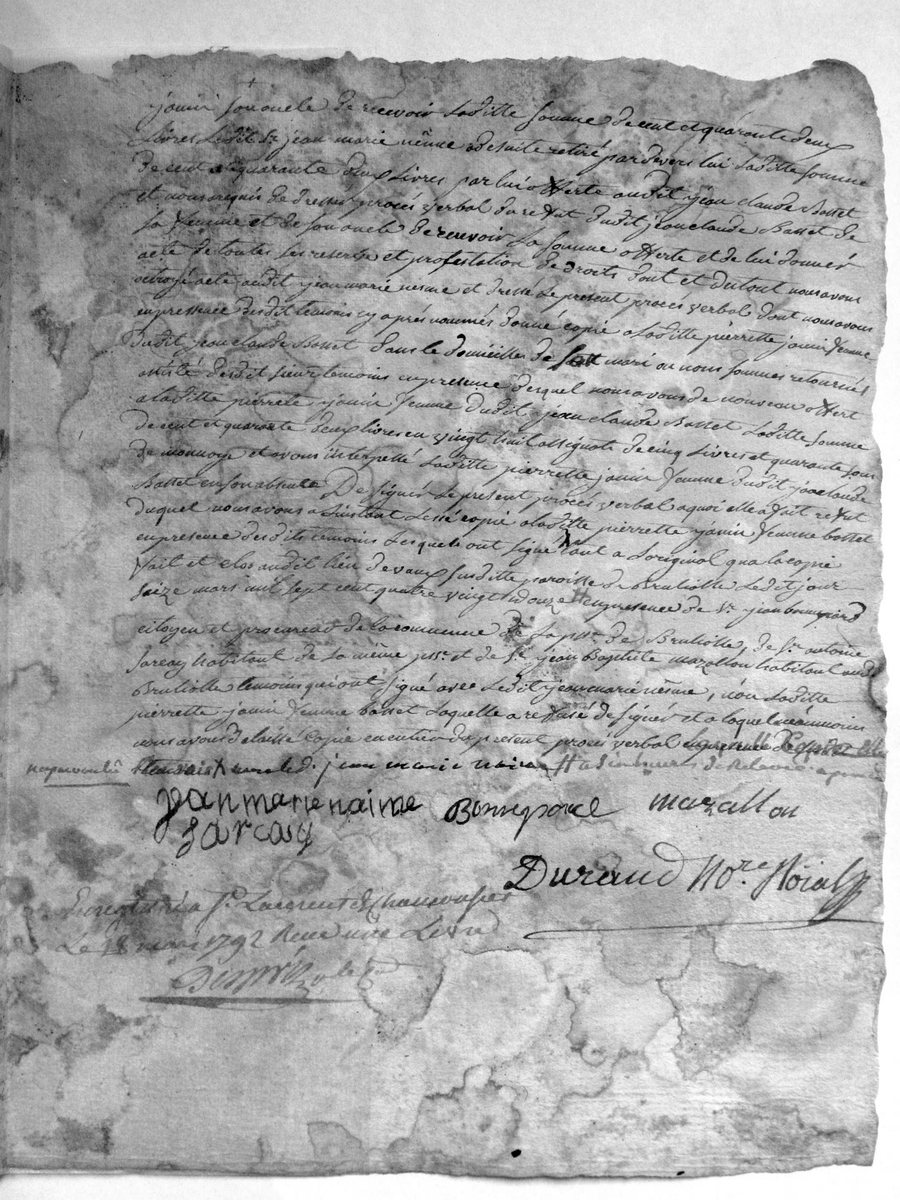 janin son oncle de recevoir laditte somme de cent et quarante deux
livres ledit Sr jean marie néme a desuite retiré pardevers lui laditte somme
de cent et quarante deux livres par lui offerte audit jean claude Bosset
et nous a requis de dresser procès verbal du refut dudit jean claude Bosset de
sa femme et de son oncle de recevoir la somme offerte et de lui donner
acte de toutes ses reserbe et protestation de droits dont et du tout nous avons
octroyé acte audit jean marie nesme et dressé le present procès verbal dont nous avons
en presence desdit temoins cy après nommés donné copie a laditte pierrette janin femme
dudit jean claude Bosset dans le domicille de son mari ou nous sommes retournés
assisté desdit sieur temoins en presence desquel nous avons de nouveau offert
a laditte pierrete janin femme dudit jean claude Bosset laditte somme
de cent et quarante deux livres en vingt huit assignats de cinq livres et quarante sous
de monnoye et avons interpellé laditte pierrette janin femme dudit jean claude
Bosset en son absence De signer le present procès verbal a quoi elle a fait refut
duquel nous avons a l'instant lessé copie a laditte pierrette janin femme bosset
en presence desdits temoins lesquels ont signé tant a l'original qua la copie
fait et clos audit lieu de vaux susditte paroisse de Brulliolle ledit jour
seize mars mil sept cent quatre vingt douze # en presence de Sr jean
citoyen et procureur de la commune de la psse de Brulliolle, de Sr antoine
jarcay habitant de la même psse et de Sr jean Baptiste mazallon habitant audit
Brulliolle temoins qui ont signé avec ledit jean marie nesme, non laditte
pierrette janin femme bosset laquelle a refusé de signer et a laquelle neanmoins
nous avons delaissé copie en entier du present procès verbal
jean marie
jean marie naime mazallon
jarcay
Durand Nore Roial
Enregistré a St Laurent de Chamousset
Le 18 mars 1792 Reçu une Livre